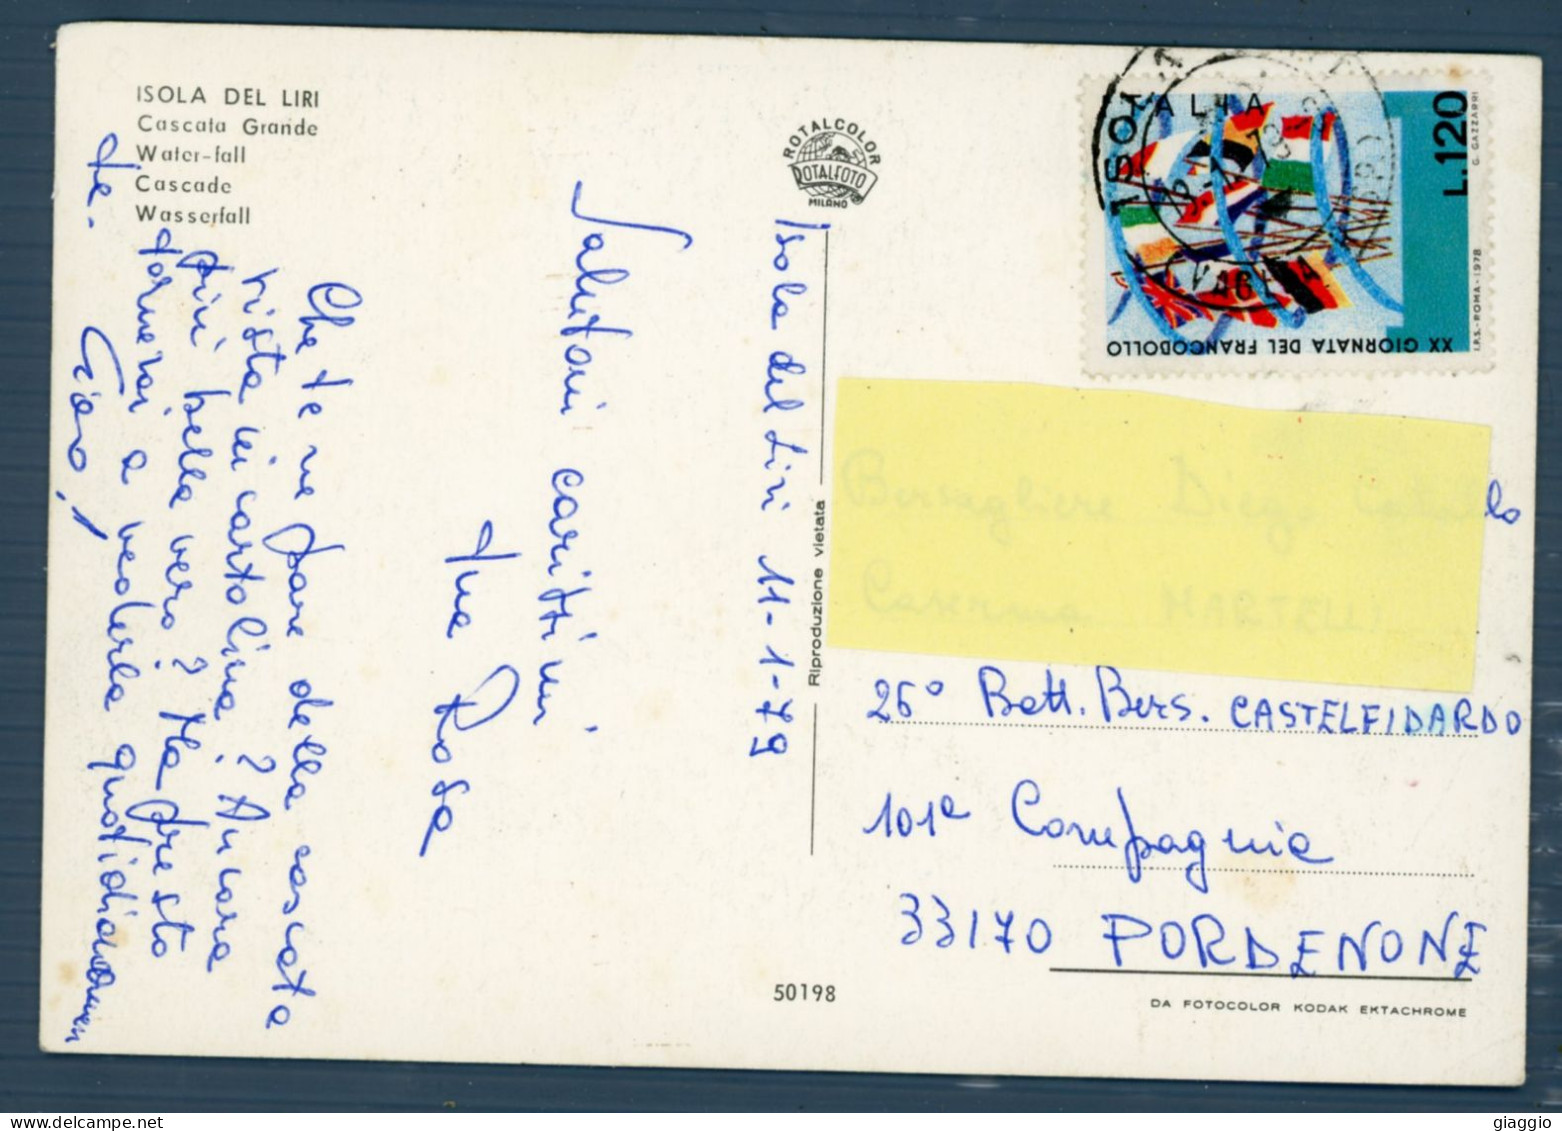 ISOLA DEL LIRI
Cascata Grande
Water-fall
Cascade
Wasserfall
Isola del Liri 11-1-79
Salutoni carissimi
tua Rosa
Che te ne pare della cascata
vista in cartolina? Ancora
più bella vero? Ma presto
tornerai a vederla quotidianamen
te. Ciao,
ROTALCOLOR
ROTALFOTO
MILANO
Riproduzione vietata
ITALIA
L.120
G. GAZZARRI
I.P.S.-ROMA-1978
XX GIORNATA DEL FRANCOBOLLO
Bersagliere Diego Cataldo
Caserma MARTELLI
26° Batt. Bers. CASTELFIDARDO
101ª Compagnia
33170 PORDENONE
50198
DA FOTOCOLOR KODAK EKTACHROME
giaggio